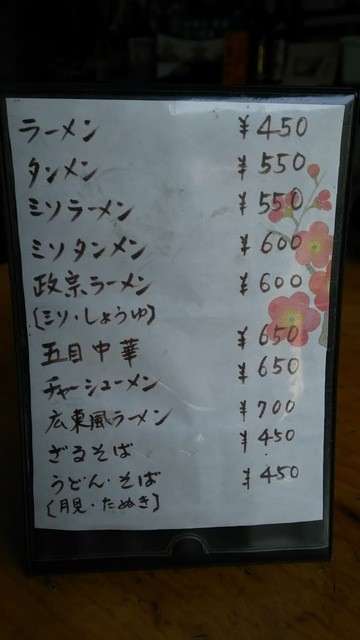 ラーメン ¥450
タンメン ¥550
ミソラーメン ¥550
ミソタンメン ¥600
政宗ラーメン ¥600
[ミソ・しょうゆ]
五目中華 ¥650
チャーシューメン ¥650
広東風ラーメン ¥700
ざるそば ¥450
うどん・そば ¥450
[月見・たぬき]